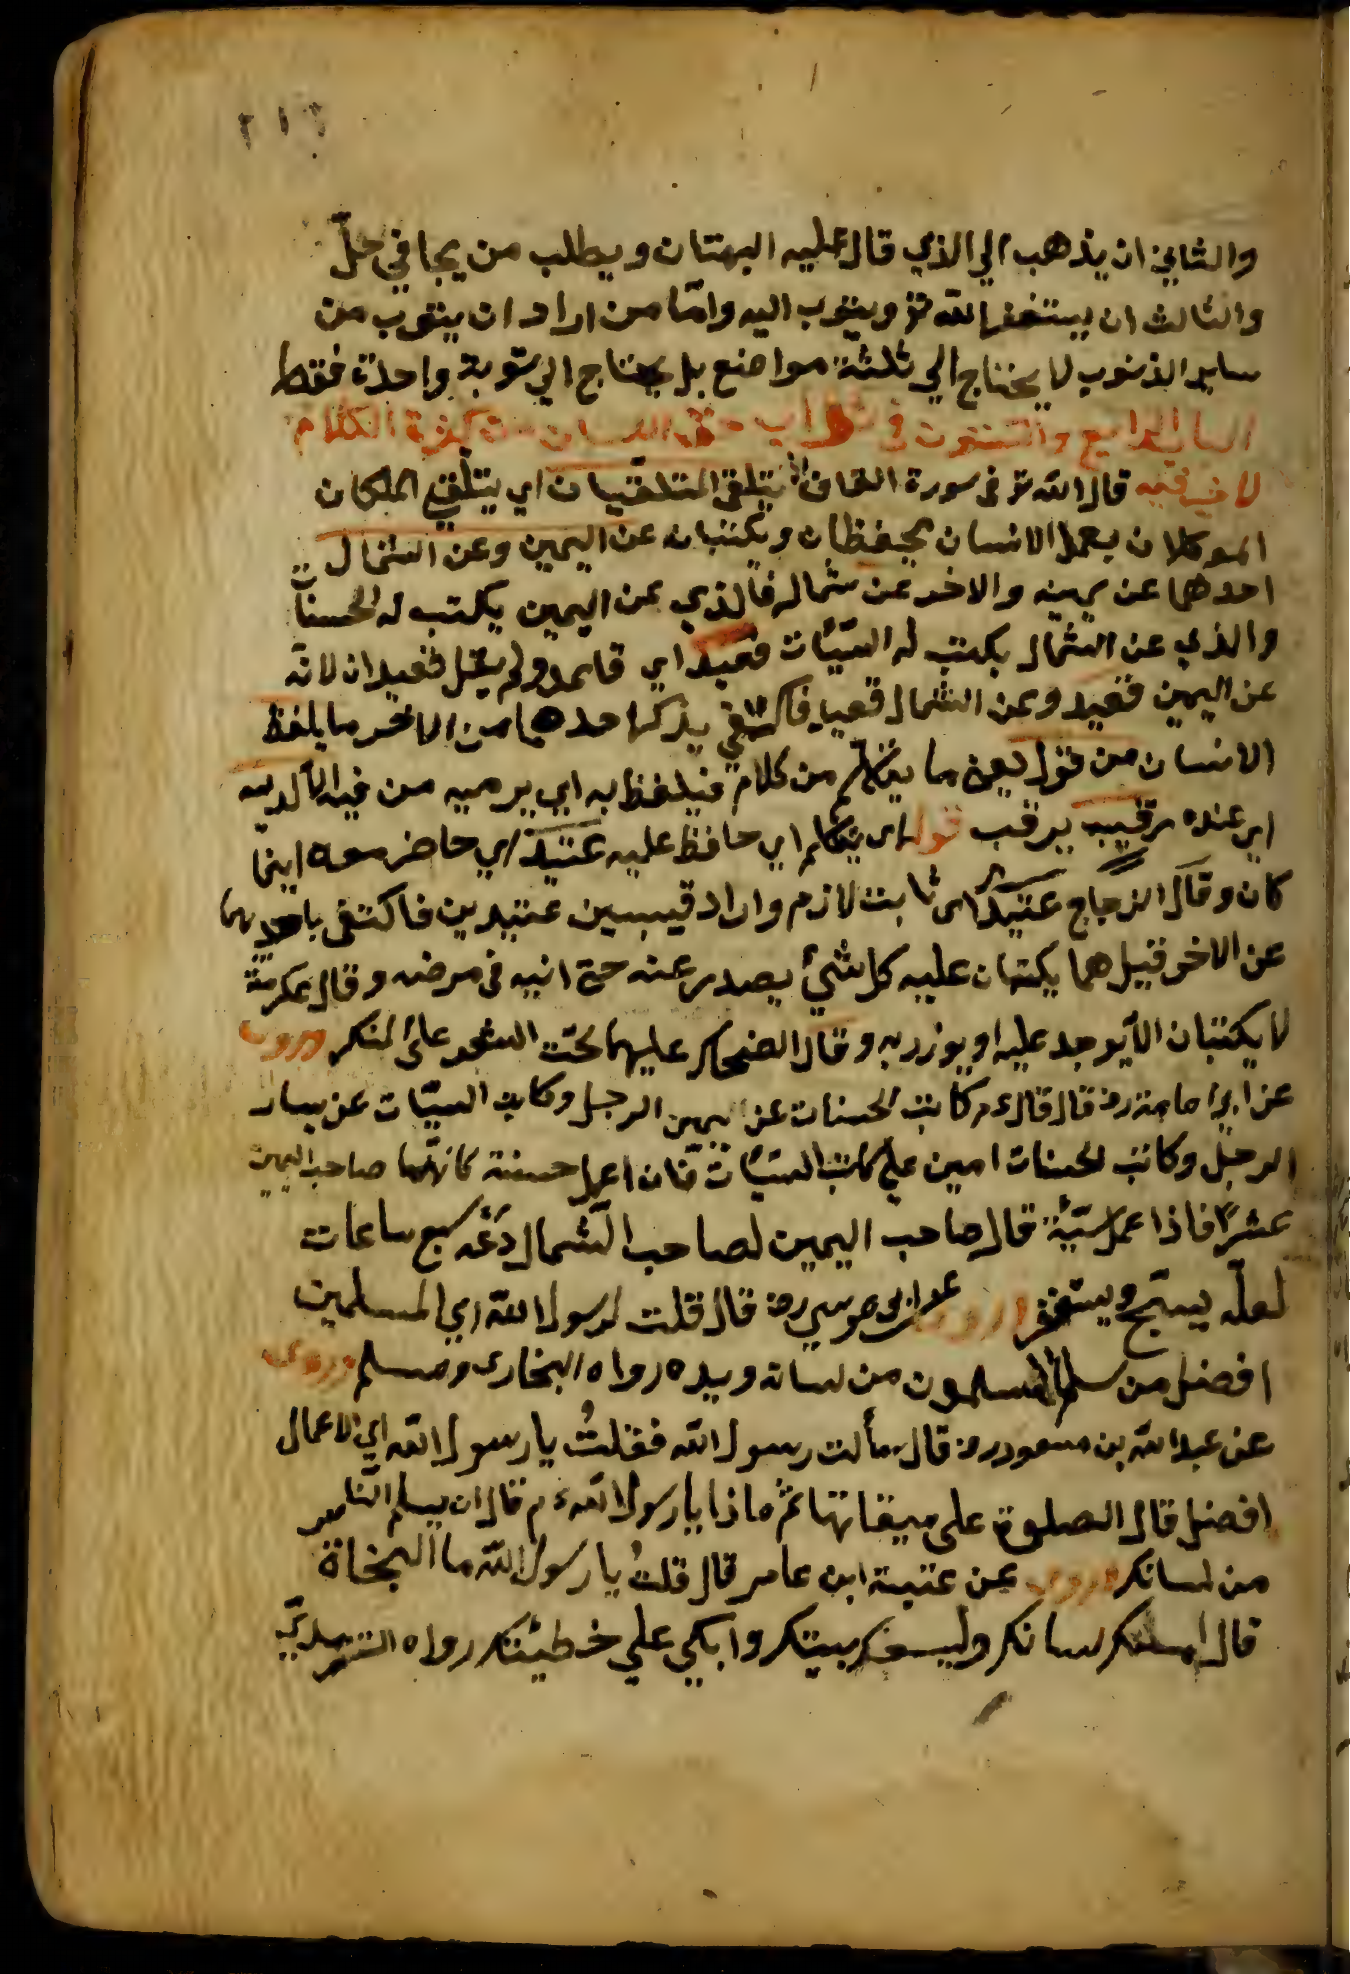 ٢١٦
والثاني ان يذهب الي الذي قال عليه البهتان ويطلب من يجا في حلّ
والثالث ان يستغفر الله تع ويتوب اليه وامّا من اراد ان يتوب من
ساير الذنوب لا يحتاج الي ثلثة مواضع بل يحتاج الي توبة واحدة فقط
الباب الرابع والستون في حفظ اللسان من كثرة الكلام
لا خير فيه قال الله تع في سورة القاف اذ يتلقى المتلقيان اي يتلقي الملكان
الموكلان بعمل الانسان يحفظان ويكتبان عن اليمين وعن الشمال
احدهما عن يمينه والاخر عن شماله فالذي عن اليمين يكتب له الحسنات
والذي عن الشمال يكتب له السيّئات قعيد اي قاعد ولم يقل قعيدان لانّه
عن اليمين قعيد وعن الشمال قعيد فاكتفي بذكر احدهما من الاخر ما يلفظ
الانسان من قول يعني ما يتكلم من كلام فيلفظ به اي يرميه من فيه الّا لديه
اي عنده رقيب يرقب قوله اي يتكلم اي حافظ عليه عتيد اي حاضر معه اينما
كان وقال الزجاج عتيد اي ثابت لازم واراد قيبين عتيدين فاكتفى باحديهما
عن الاخر فقيل هما يكتبان عليه كل شيء يصدر عنه حتى انيه في مرضه وقال عكرمة
لا يكتبان الّا يوجد عليه او يوزر به وقال الضحاك عليهما تحت الشعر على المنكر وروى
عن ابي امامة رض قال قال ع م كاتب الحسنات عن يمين الرجل وكاتب السيّات عن يسار
الرجل وكاتب الحسنات امين علي كاتب السيّئات فان اعمل حسنة كاتبها صاحب اليمين
عشرا فاذا عمل سيّئة قال صاحب اليمين لصاحب الشمال دَعْه سبع ساعات
لعلّه يسبّح ويستغفر وروى عن ابي موسي رض قال قلت لرسول الله اي المسلمين
افضل من سلم المسلمون من لسانه ويده رواه البخاري ومسلم وروى
عن عبد الله بن مسعود رض قال سألت رسول الله فقلتُ يا رسول الله اي الاعمال
افضل قال الصلوة على ميقاتها ثم ماذا يا رسول الله ع م قال ان يسلم الناس
من لسانك وروى عن عتبة ابن عامر قال قلتُ يا رسول الله ما النجاة
قال املك لسانك وليسعك بيتك وابكي علي خطيئتك رواه الترمذي